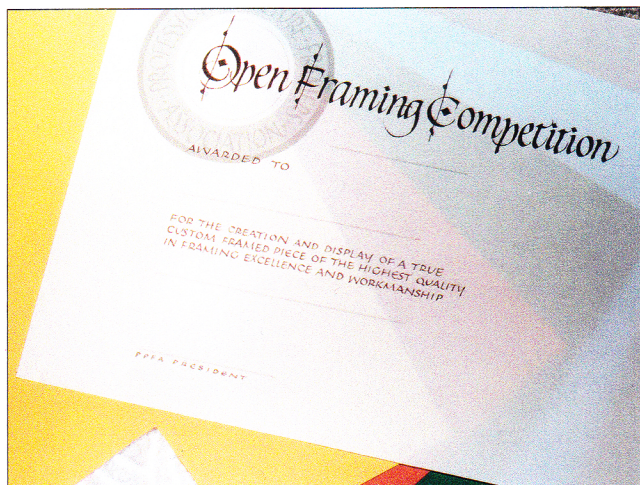 Open Framing Competition
AWARDED TO
FOR THE CREATION AND DISPLAY OF A TRUE
CUSTOM FRAMED PIECE OF THE HIGHEST QUALITY
IN FRAMING EXCELLENCE AND WORKMANSHIP
PPFA PRESIDENT
ASSOCIATION